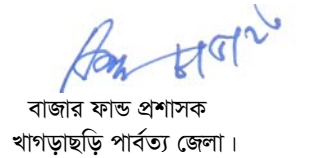 বাজার ফান্ড প্রশাসক
খাগড়াছড়ি পার্বত্য জেলা।